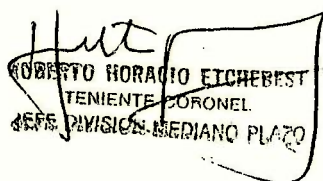 ROBERTO HORACIO ETCHEBEST
TENIENTE CORONEL
JEFE DIVISION MEDIANO PLAZO